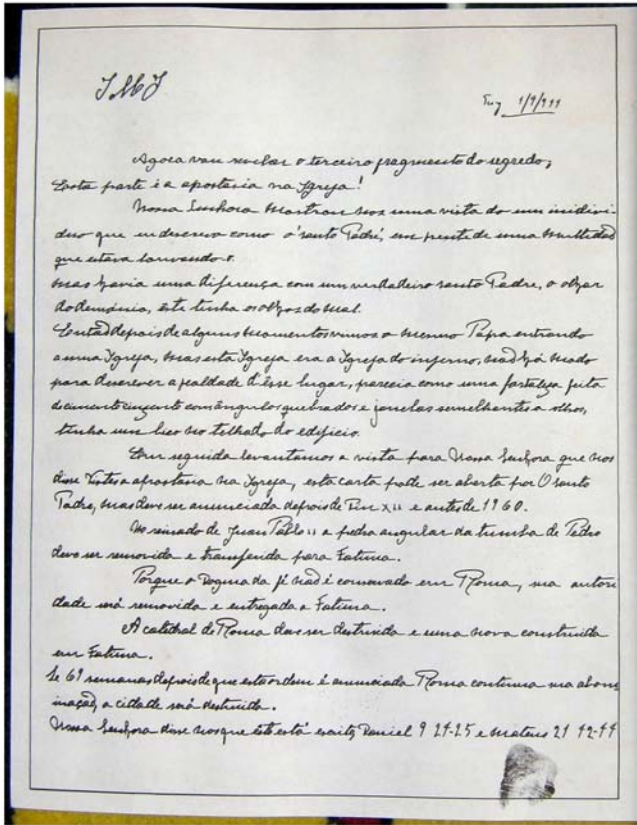 JMJ
Tuy 1/9/1944
Agora vou revelar o terceiro fragmento do segredo;
Esta parte é a apostasia na Igreja!
Nossa Senhora mostrou nos uma vista do um individ-
duo que eu descrevo como o 'santo Padre', em frente de uma multidad
que estava louvando-o.
Mas havia uma diferença com um verdadeiro santo Padre, o olhar
do demónio, êste tinha os olhos do mal.
Entad depois de alguns momentos vimos o mesmo Papa entrando
a uma Igreja, mas esta Igreja era a Igreja do inferno, nad há modo
para descrever a fealdade d'êsse lugar, parecia como uma fortaleza feita
de cimento cinzento com ângulos quebrados e janelas semelhantes a olhos,
tinha um bico no telhado do edificio.
Em seguida levantamos a vista para Nossa Senhora que nos
disse Vistes a apostasia na Igreja, esta carta pode ser aberta por O santo
Padre, mas deve ser anunciada depois de Pio XII e antes de 1960.
No reinado de Juan Pablo II a pedra angular da tumba de Pedro
deve ser removida e transferida para Fatima.
Porque o Dogma da fé nad é conservado em Roma, sua autori
dade será removida e entregada a Fatima.
A catedral de Roma deve ser destruida e uma nova construida
em Fatima.
Se 69 semanas depois de que esta ordem é anunciada Roma continua sua abom-
inaçad, a cidade será destruida.
Nossa Senhora disse nos que êste está escrito, Daniel 9 24-25 e Mateus 21 42-44